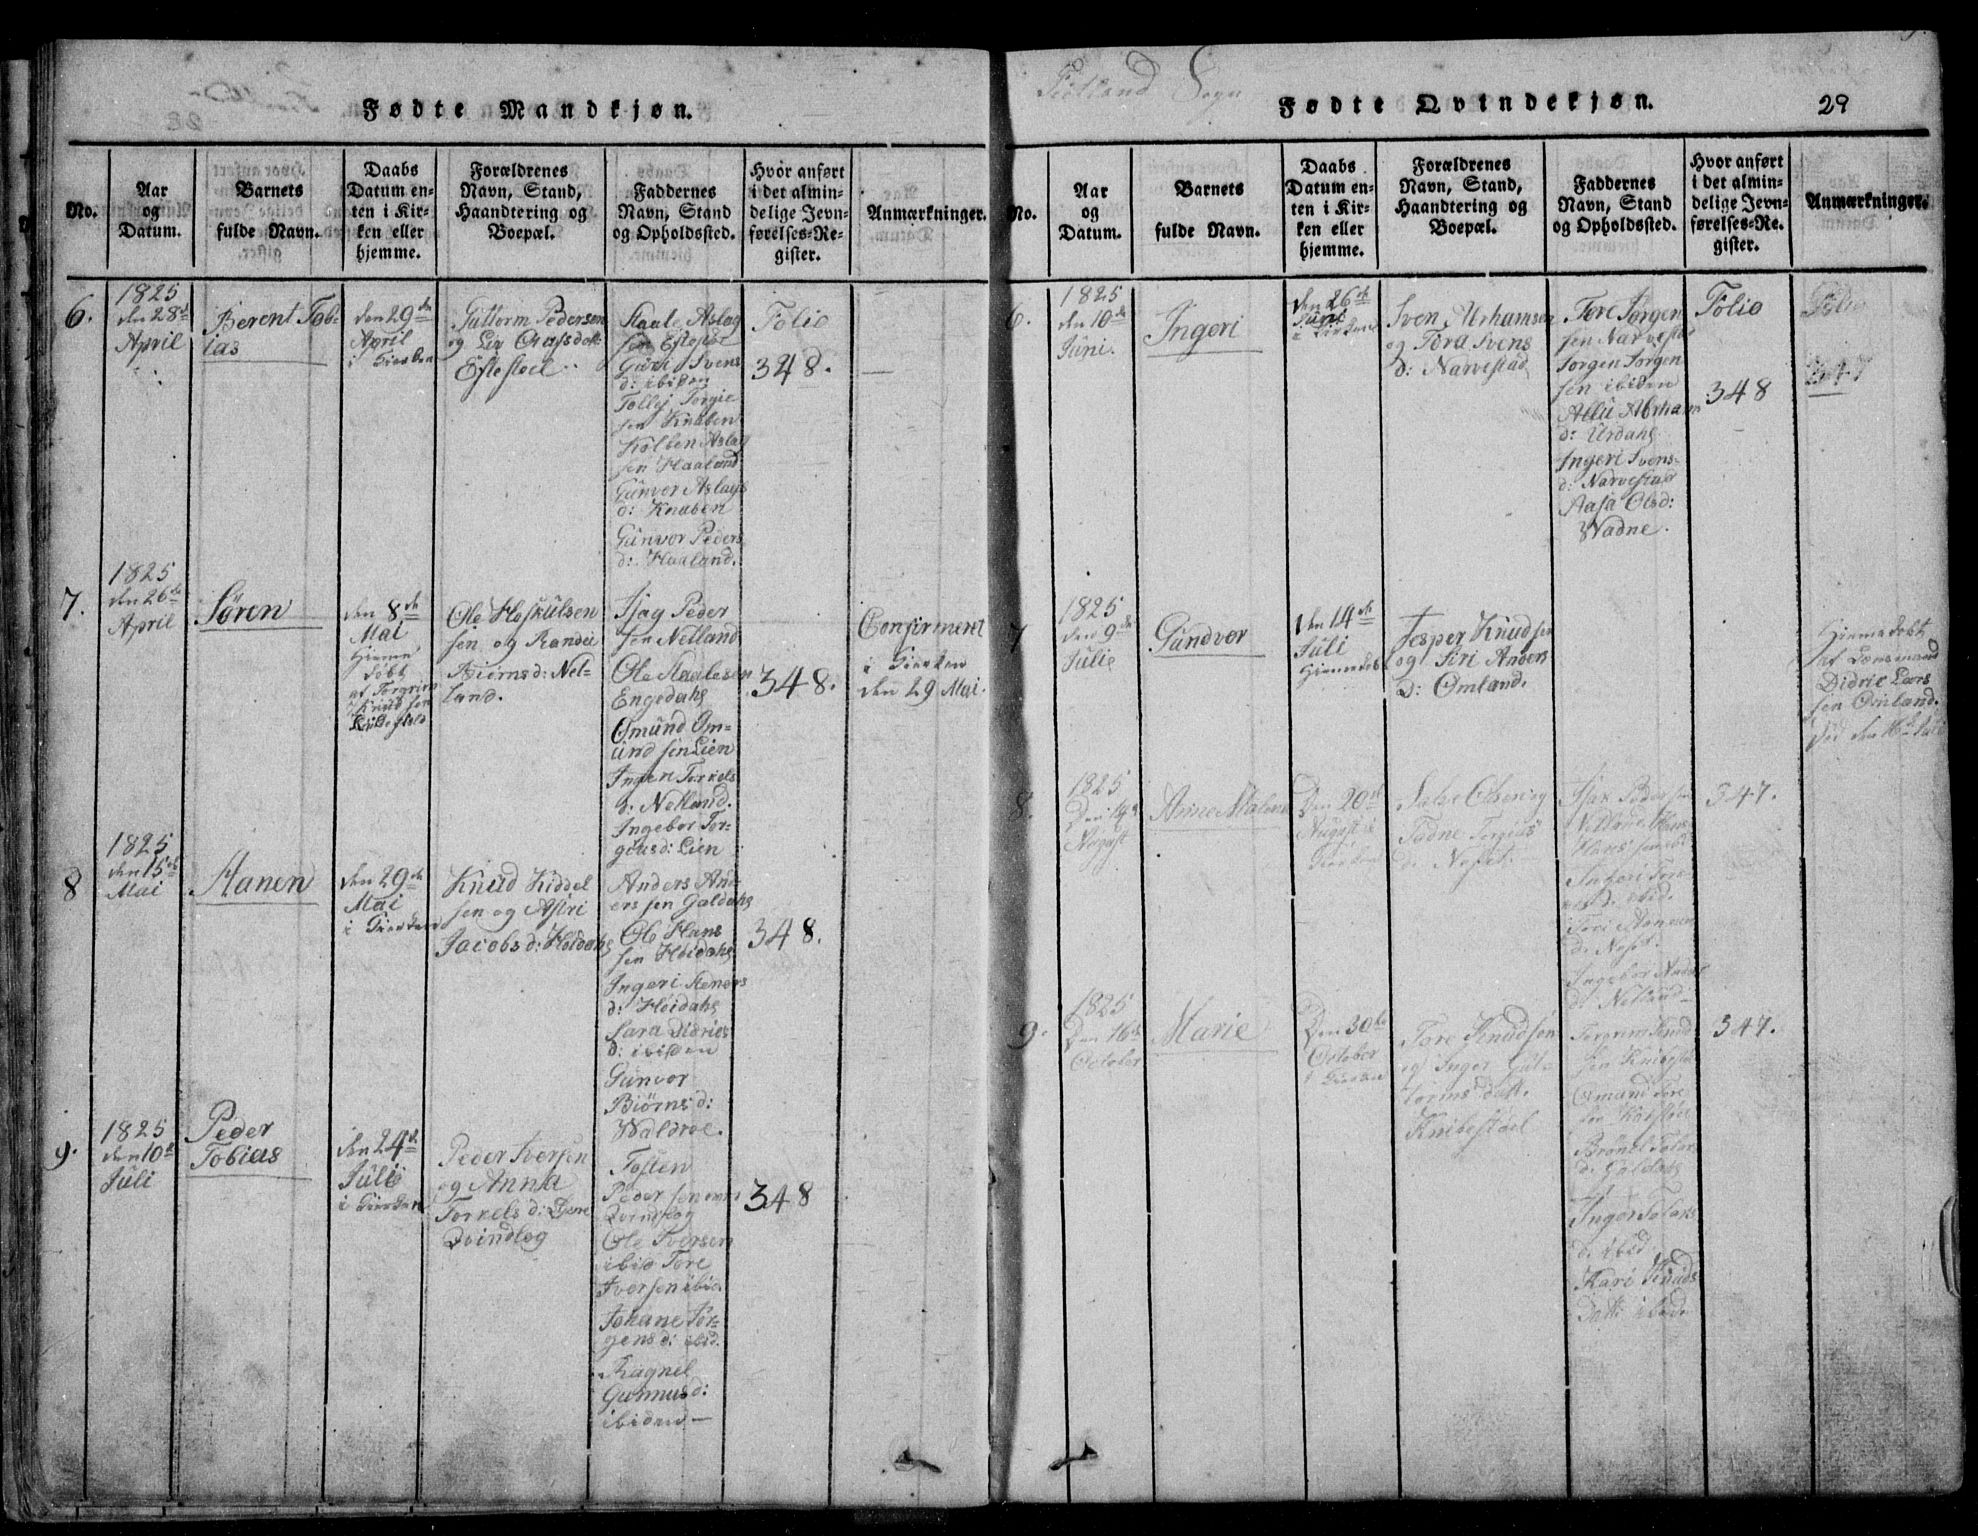 Fødte Mandkjøn.
No.
Aar
og
Datum.
Barnets
fulde Navn.
Daabs
Datum en-
ten i Kir-
ken eller
hjemme.
Forældrenes
Navn, Stand,
Haandtering og
Boepæl.
Faddernes
Navn, Stand
og Opholdssted.
Hvor anført
i det almin-
delige Jevn-
førelses-Re-
gister.
Anmærkninger.
6.
1825
den 28de
April
Berent Tob-
ias
den 29de
April
i Kirken
Guttorm Pedersen
og Liv Olaisdatt:
Eftestøel
Staale Aslag
sen Eftestøl
Guri Svens
d: ibiden
Tollej Torgie
sen Knaben
Kolben Aslag
sen Haaland
Gunvor Aslags
d: Knaben
Gunvor Peders
d: Haaland.
Folio
348.
7.
1825
den 26de
April
Søren
den 8de
Mai
Hjemme
Døbt
af Torgrim
Knudsen
Ole Høskulsen
sen og Randei
Biørnsd: Net-
land.
Isag Peder
sen Netland
Ole Staalesen
Engedahl
Osmund Om-
und sen Lien
Inger Torkels
d: Netland.
Ingebor Tor-
giusd: Lien
348.
Confirmeret
i Kirken
den 29 Mai.
8
1825
den 15de
Mai
Hanen
den 29de
Mai
i Kirken
Knud Kiddel
sen og Astri
Jacobsd: Høidahl
Anders And-
ers sen Galdahl
Ole Hans
sen Høidahl
Ingeri Steners
d: Høidahl
Sara Didrics
d: ibiden
Gunvor
Biørnsd:
Waldroe.
348.
9.
1825
den 10de
Juli
Peder
Tobias
den 24de
Juli
i Kirken
Peder Iversen
og Anna
Torkelsd: Øvre
Qvindlog
Tosten
Peder sen øvre
Qvindlog
Ole Iversen
ibid Tore
Iversen ibid.
Johane Jør-
gensd: ibid.
Ragnel
Gunnusd:
ibiden —
348
Fødte Qvindekjøn.
Fiitland Sogn
29
No.
Aar
og
Datum.
Barnets
fulde Navn.
Daabs
Datum en-
ten i Kir-
ken eller
hjemme.
Forældrenes
Navn, Stand,
Haandtering og
Boepæl.
Faddernes
Navn, Stand
og Opholdssted.
Hvor anført
i det almin-
delige Jevn-
førelses-Re-
gister.
Anmærkninger.
6.
1825
den 10de
Juni.
Ingeri
den 26de
Juni
i Kirken
Sven Abrhamsen
og Tora Svens
d: Narvestad
Tore Jørgen
sen Narvestad
Jorgen Jørgen
sen ibiden
Allii Abrham
d: Urdahl
Ingeri Svens-
d: Narvestad
Aasa Olsd:
Wadne.
Folio
348
Folio
347
7
1825
den 9de
Julie
Gundvor
den 14de
Juli
Hjemmedøb
Jesper Knudsen
og Siri Anders
D: Omland.
Hjemmedøbt
af Lensmand
Didric Lars
sen Omland.
Død den 16de Juli
8.
1825
Den 14de
August
Anne Malene
Den 20de
August i
Kirken
Salve Olsen og
Tadne Torgius
d: Neset.
Isak Peder sen
Netland Hans
Ingebor
d: Netland
347.
9.
1825
Den 16de
October
Marie
Den 30te
October
i Kirken
Tore Knudsen
og Inger Gut-
torms datt.
Knibestøel
Torgrim Knud
sen Knibestøl
Osmund Tore
sen
d: Galdahl
Inger
d: ibid
Kari Knuds
Datt: ibid
347.